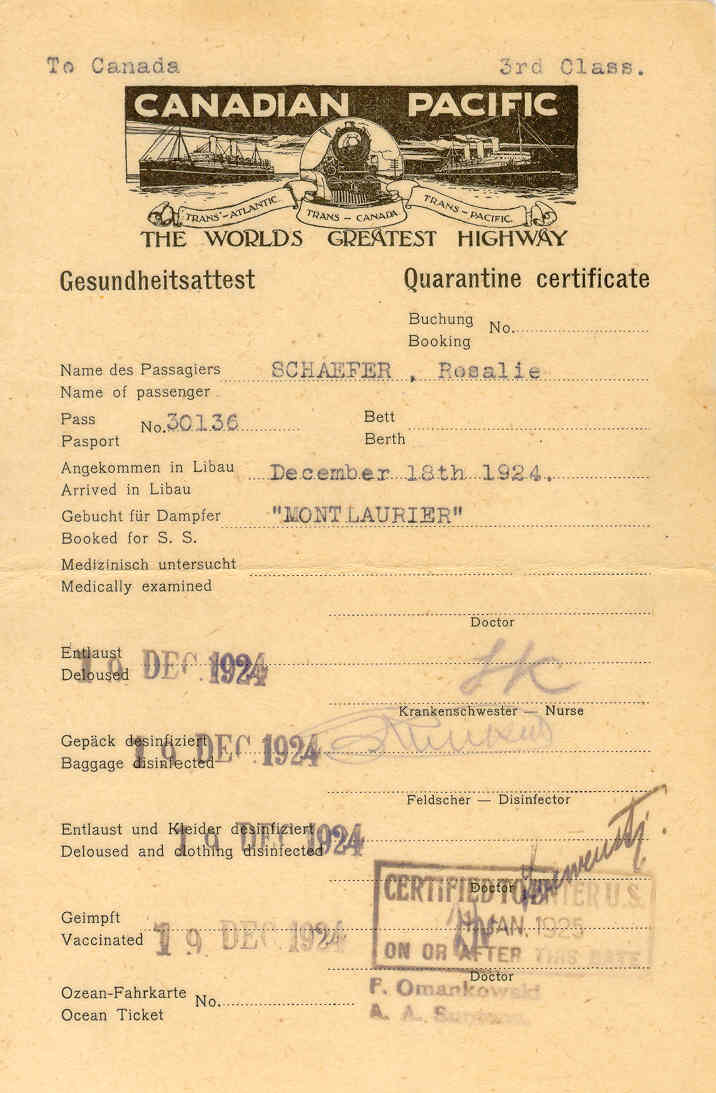 To Canada 3rd Class.
CANADIAN PACIFIC
TRANS-ATLANTIC. TRANS-CANADA TRANS-PACIFIC.
THE WORLDS GREATEST HIGHWAY
Gesundheitsattest Quarantine certificate
Buchung
Booking No.
Name des Passagiers SCHAEFER, Rosalie
Name of passenger
Pass Bett
Pasport No. 30136 Berth
Angekommen in Libau December 18th 1924.
Arrived in Libau
Gebucht für Dampfer "MONTLAURIER"
Booked for S. S.
Medizinisch untersucht
Medically examined
Doctor
Entlaust
Deloused 19 DEC. 1924
Krankenschwester — Nurse
Gepäck desinfiziert
Baggage disinfected 19 DEC. 1924
Feldscher — Disinfector
Entlaust und Kleider desinfiziert
Deloused and clothing disinfected 19 DEC. 1924
Doctor
CERTIFIED TO ENTER U.S.
JAN. 1925
ON OR AFTER THIS DATE
Geimpft
Vaccinated 19 DEC 1924
Doctor
F. Omankowski
A. A.
Ozean-Fahrkarte
Ocean Ticket No.